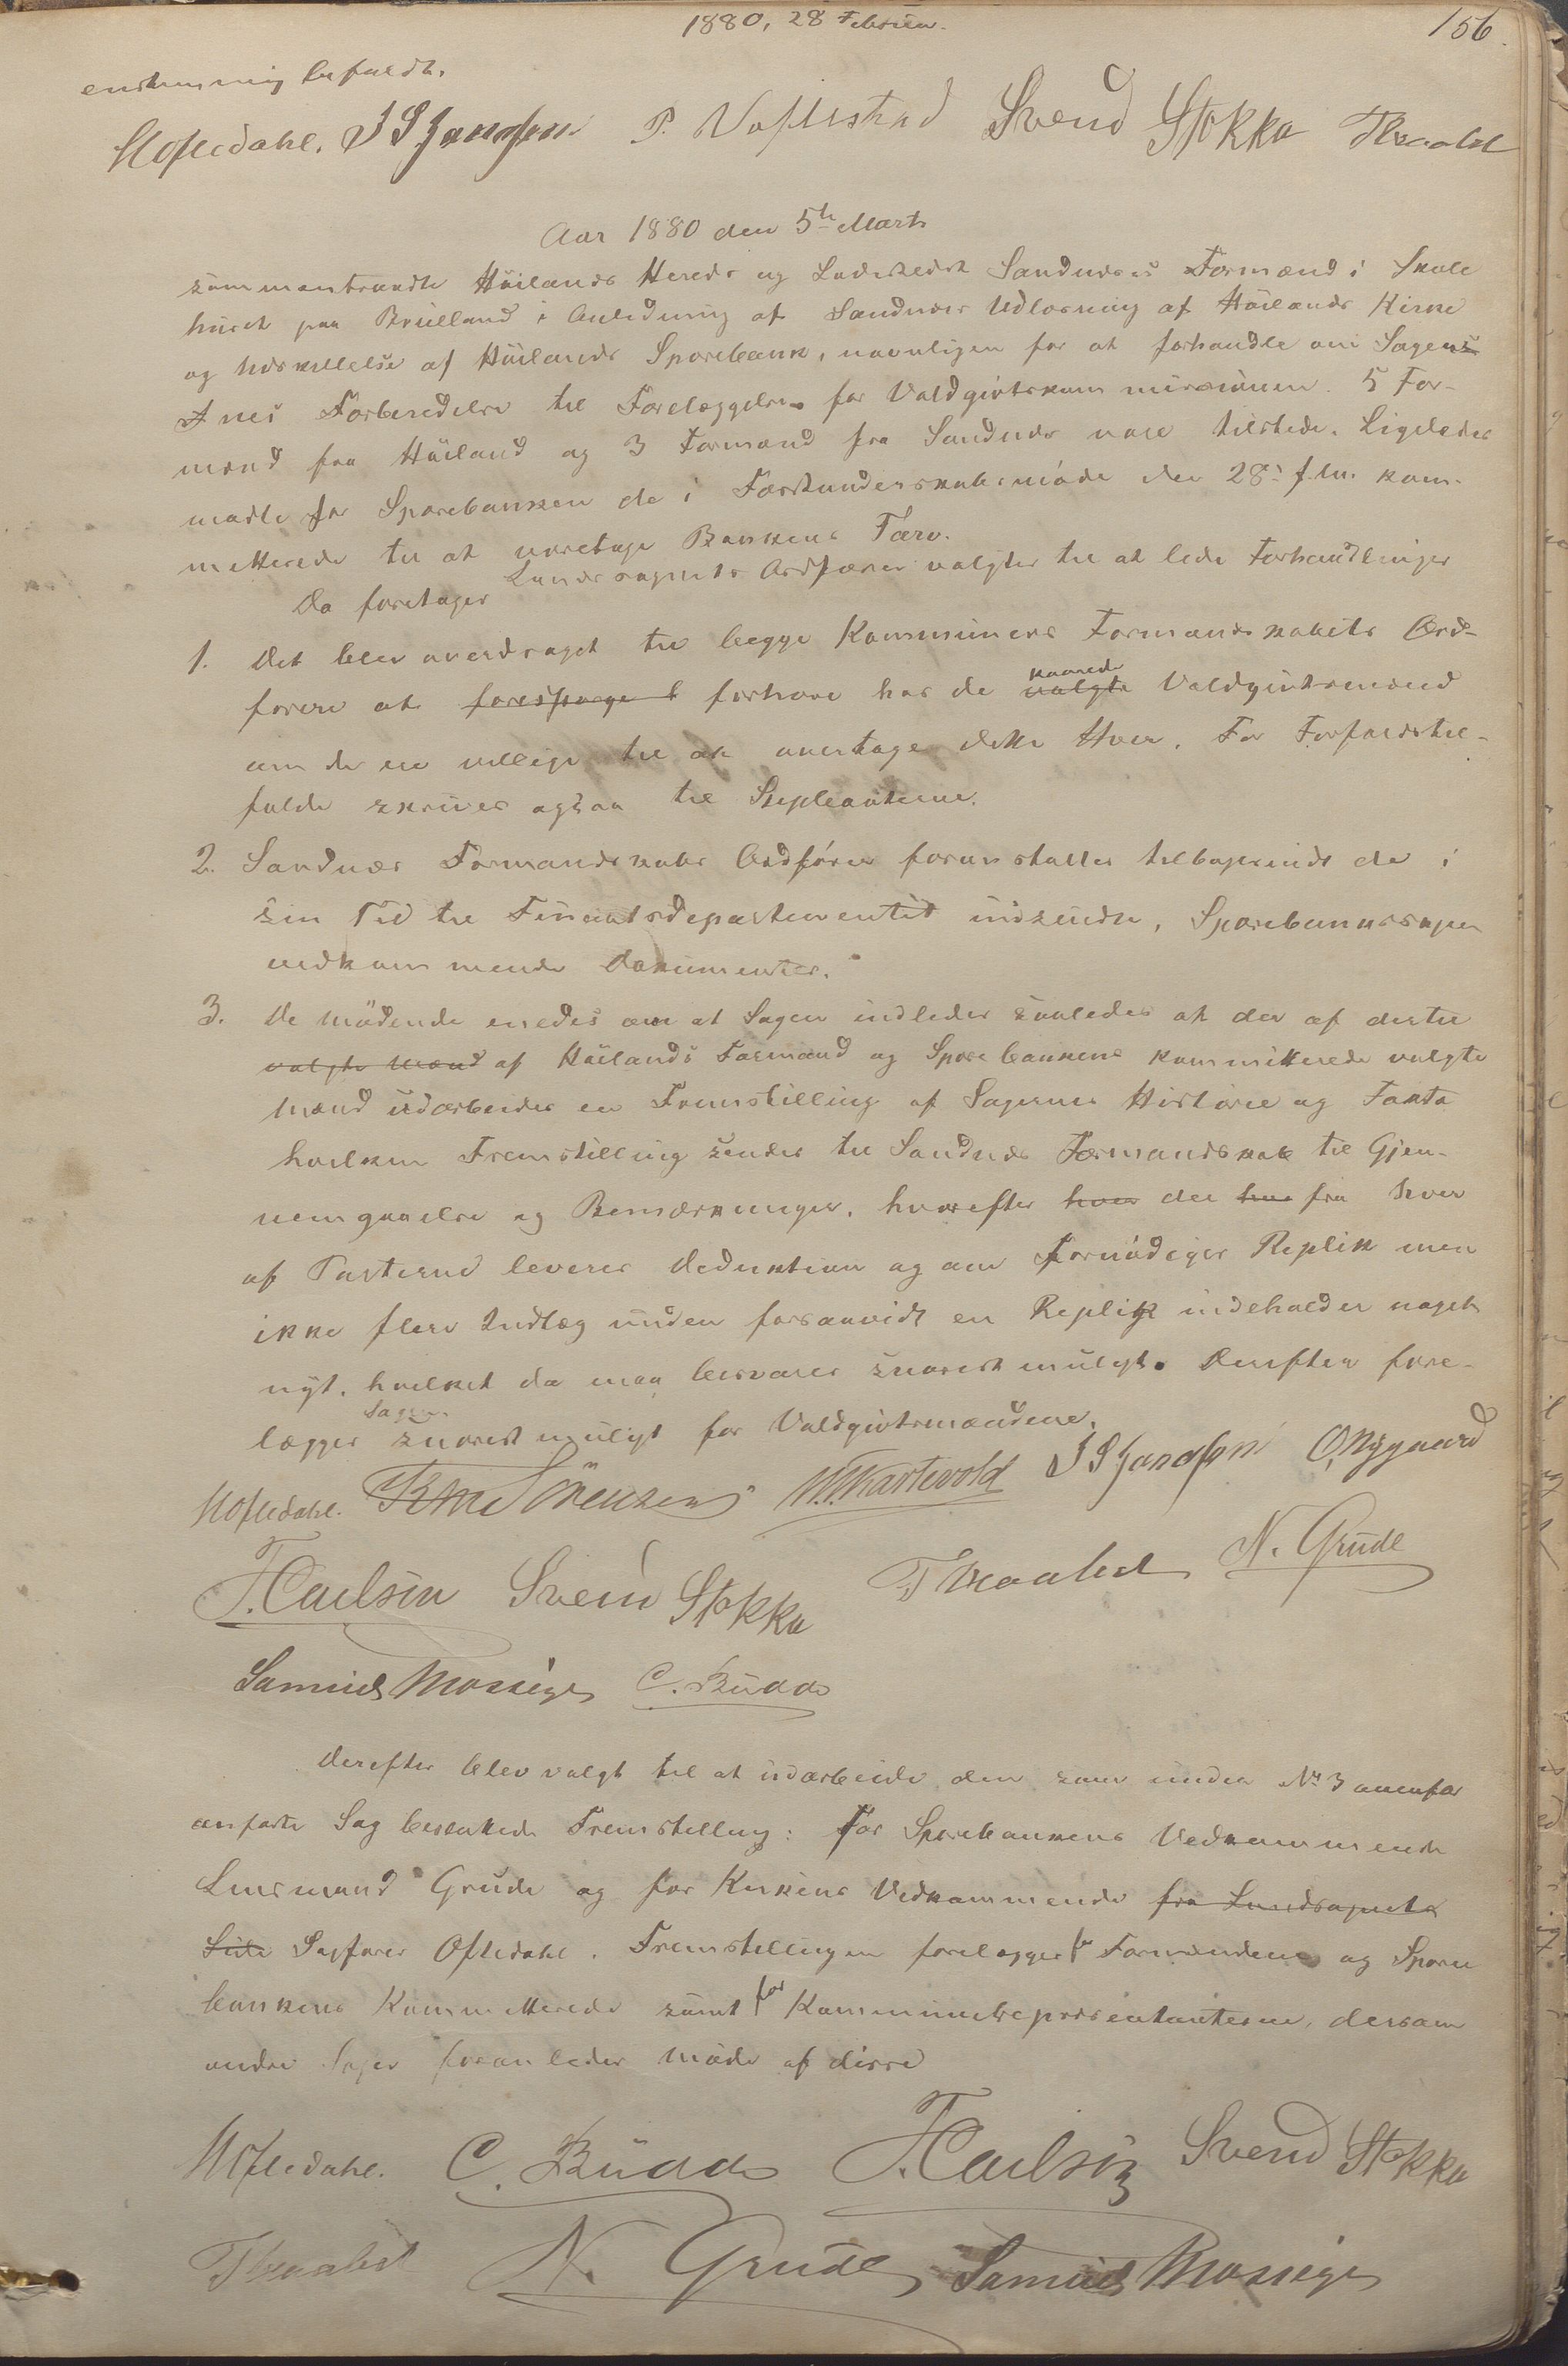 1880, 28 Februar.
156.
enstemmig bifaldt.
M Oftedahl. J S Jonassen P. Voslestad Svend Stokka T Kraabel
Aar 1880 den 5te Marts
sammentraadte Höilands Herreds og Ladestedet Sandnæs's Formænd i Skole
huset paa Brueland i Anledning af Sandnæs Udlösning af Höilands Kirke
og Udskillelse af Höilands Sparebank, navnligen for at forhandle om Sagens
Forberedelse til Forelæggelse for Voldgivtskommissionen. 5 For-
mænd fra Höiland og 3 Formænd fra Sandnæs vare tilstede. Ligeledes
mødte for Sparebanken de i Forstanderskabsmöde den 28de f. M. kom-
mitterede til at varetage Bankens Tarv.
Da foretages Landsognets Ordfører valgtes til at lede Forhandlinger
1. Det blev overdraget til begge Kommuners Formandskabets Ord-
förere at forespørge forhøre hos de valgte kaarede Voldgivtsmænd
om de ere villige til at overtage dette Hverv. For Forfaldstil-
fælde skrives ogsaa til Supleanterne.
2. Sandnæs Formandskabs Ordförer foranstalter tilbagesendt de i
sin Tid til Finantsdepartementet indsendte, Sparebankssagen
vedkommende Dokumenter.
3. De mödende enedes om at Sagen indledes saaledes at der af dertil
valgte Mænd af Höilands Formænd og Sparebankens kommitterede valgte
Mænd udarbeides en Fremstilling af Sagernes Historie og Fakta
hvilken Fremstilling sendes til Sandnæs Formandskab til Gjen-
nemgaaelse og Bemærkninger, hvorefter hver der hver fra hver
af Parterne leveres Deduktion og om fornödiges Replik men
ikke flere Indlæg uden forsaavidt en Replik indeholder noget
nyt, hvilket da maa besvares snarest muligt. Derefter fore-
lægges Sagen snarest muligt for Voldgivtsmændene.
M Oftedahl. Sörensen J S Jonassen O. Nygaard
T. Carlsen Svend Stokka T Kraabel N. Grude
Samuel Mossige C. Budde
Derefter blev valgt til at udarbeide den som under No 3 ovenfor
anförte Sag besluttede Fremstilling: For Sparebankens Vedkommende
Lensmand Grude og for Kirkens Vedkommende fra Landsognets
Side Sagfører Oftedahl. Fremstillingen forelægges for Formændene og Spare
bankens Kommitterede samt for Kommunerepræsentanterne, dersom
andre Sager foranlediger Möde af disse
M Oftedahl. C. Budde T. Carlsen Svend Stokka
T Kraabel N. Grude Samuel Mossige